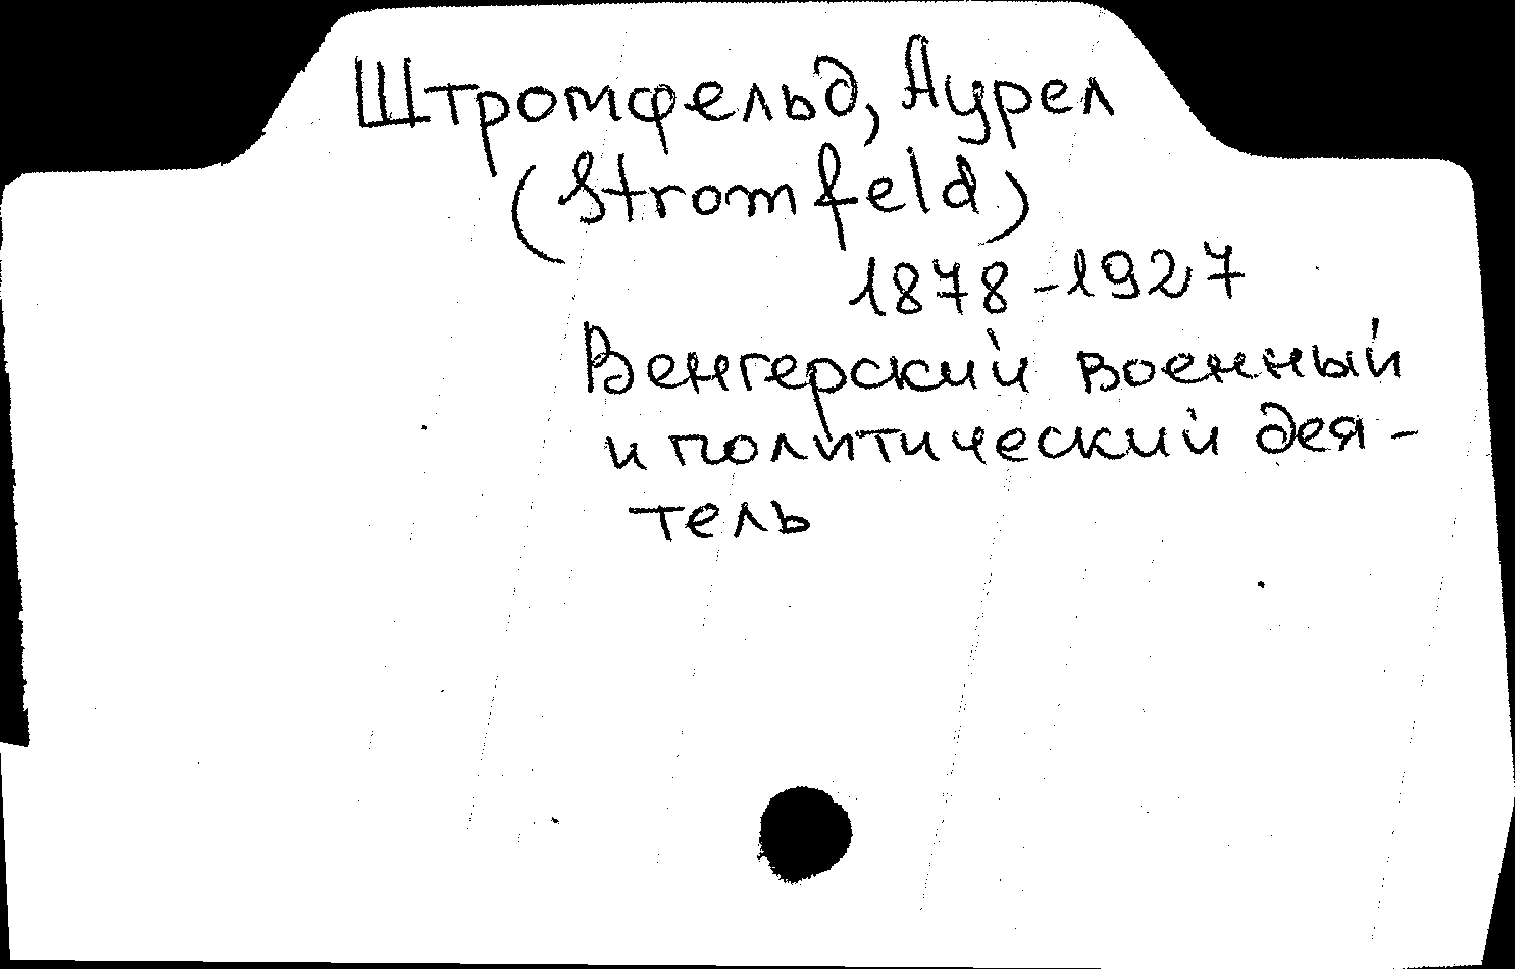 Штромфельд, Аурел
(Stromfeld)
1878-1927
Венгерский военный
и политический дея-
тель